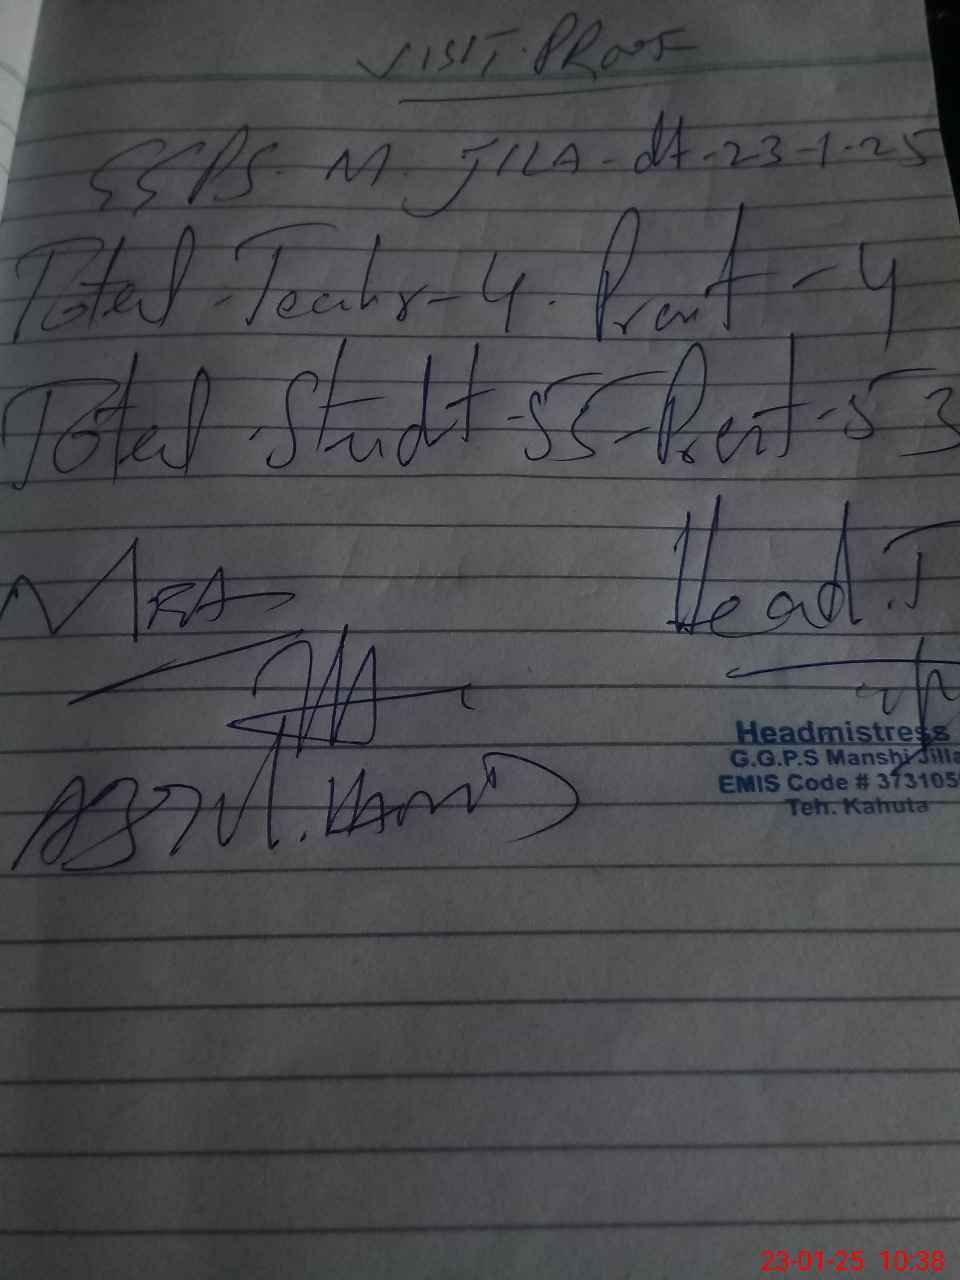 VISIT PROOF
GGPS. M. JILA - dt - 23-1-25
Total - Teachr - 4. Prent - 4
Total - Studt - 55 - Prent - 53
MEA
Head. T
Headmistress
G.G.P.S Manshi Jilla
EMIS Code # 373105
Teh. Kahuta
23-01-25 10:38